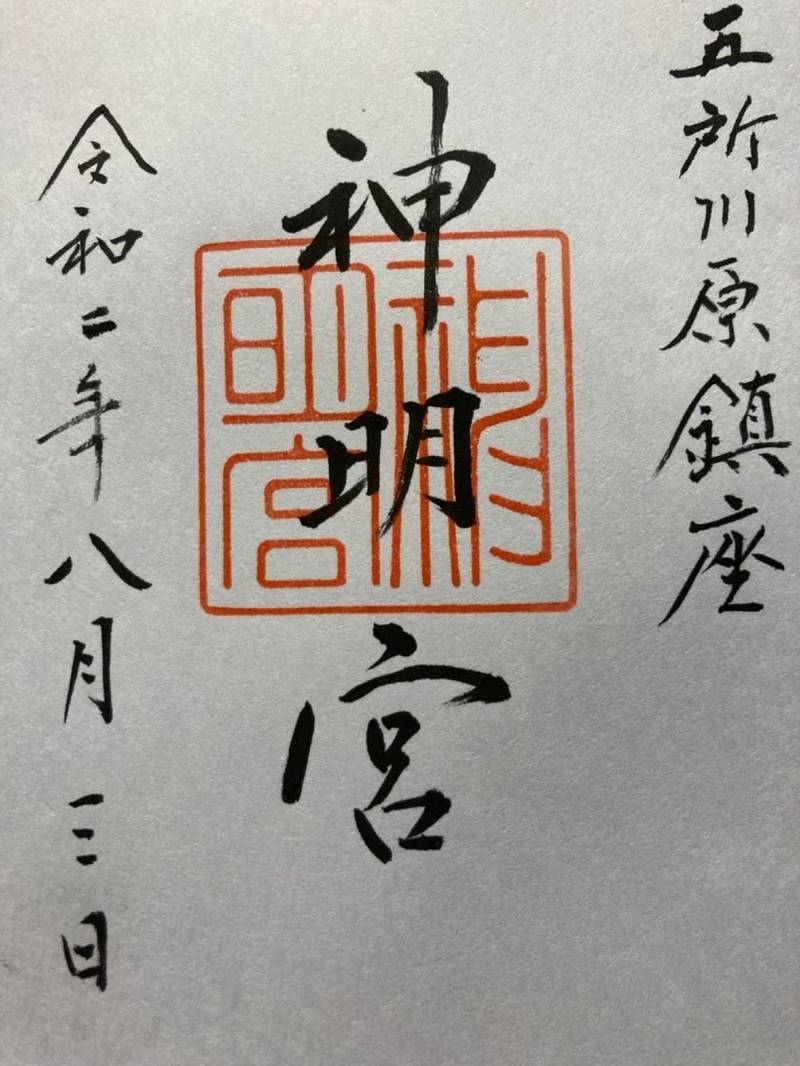 五所川原鎮座
神明宮
令和二年八月三日